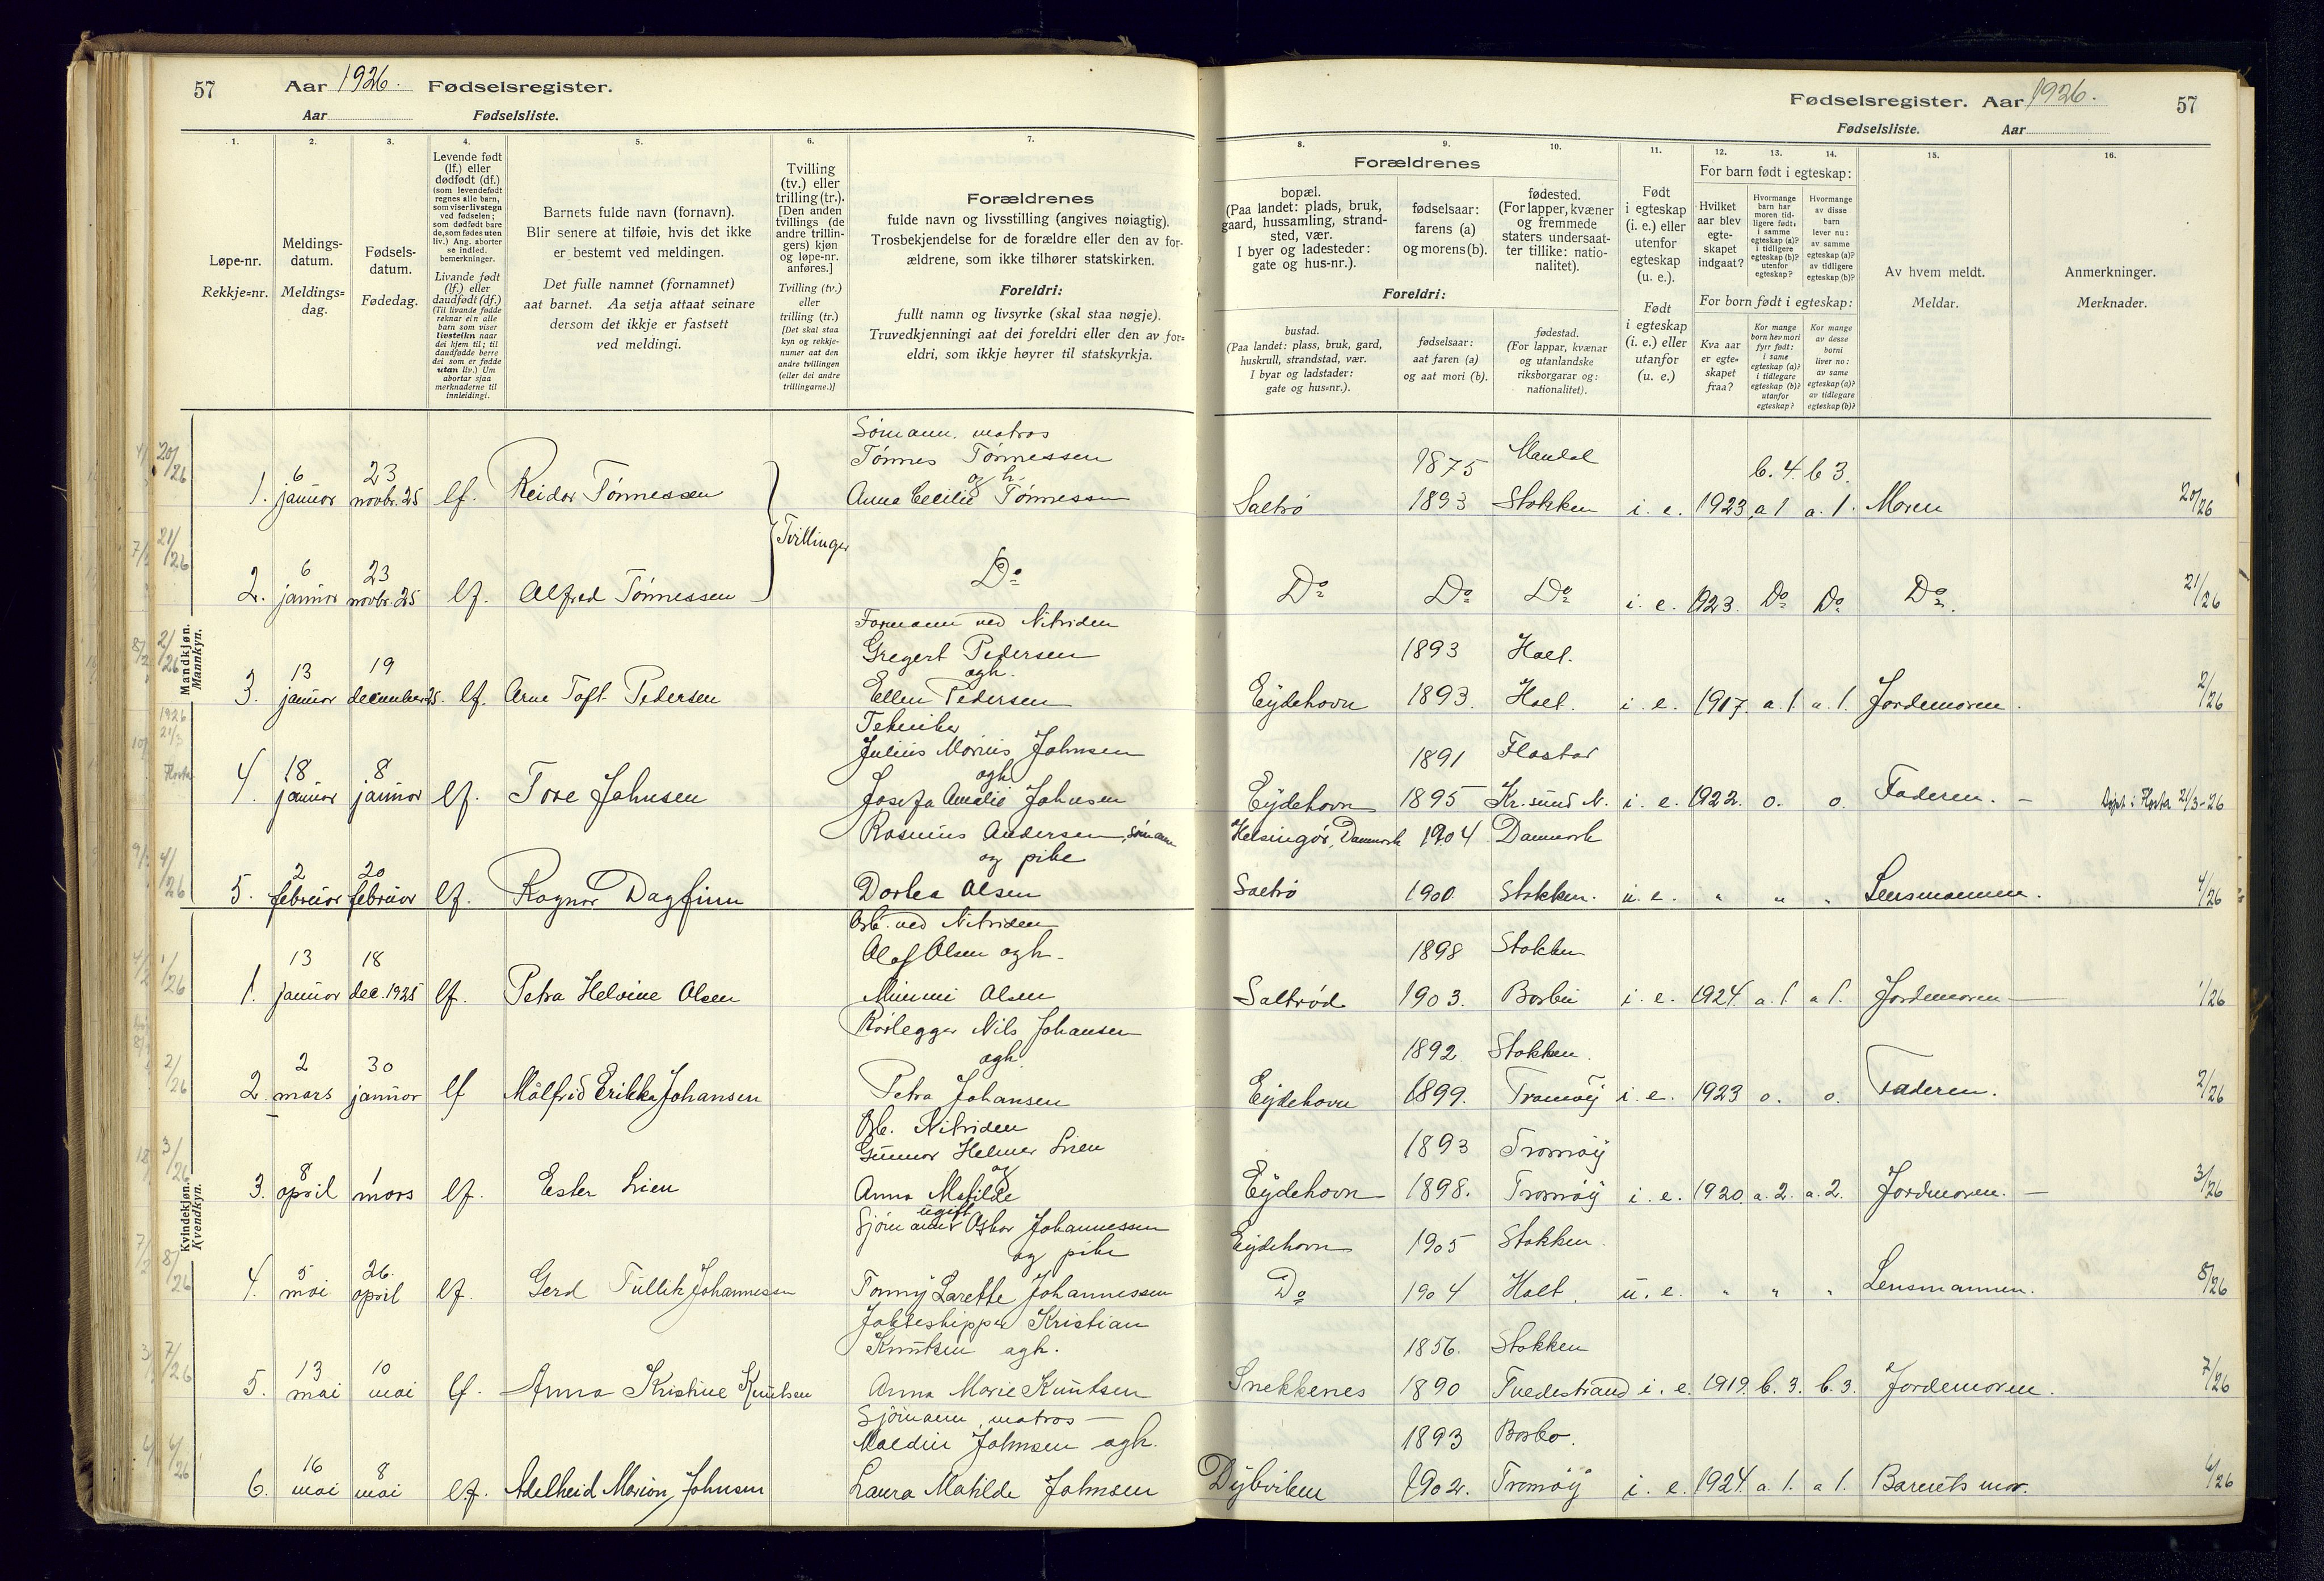 57 Aar 1926. Fødselsregister.
Aar Fødselsliste.
1. 2. 3. 4. 5. 6. 7.
Løpe-nr.
Rekkje=nr.
Meldings-
datum.
Meldings=
dag.
Fødsels-
datum.
Fødedag.
Levende født
(lf.) eller
dødfødt (df.)
(som levendefødt
regnes alle barn,
som viser livstegn
ved fødselen;
som dødfødt bare
de, som fødes uten
liv.) Ang. aborter
se indled.
bemerkninger.
Livande født
(lf.) eller
daudfødt (df.)
(Til livande fødde
reknar ein alle
born som viser
livsteikn naar
dei kjem til; til
daudfødde berre
dei som er fødde
utan liv.) Um
abortar sjaa
merknaderne til
innleidingi.
Barnets fulde navn (fornavn).
Blir senere at tilføie, hvis det ikke
er bestemt ved meldingen.
Det fulle namnet (fornamnet)
aat barnet. Aa setja attaat seinare
dersom det ikkje er fastsett
ved meldingi.
Tvilling
(tv.) eller
trilling (tr.).
[Den anden
tvillings (de
andre trillin-
gers) kjøn
og løpe-nr.
anføres.]
Tvilling (tv.)
eller
trilling (tr.)
[Det skal staa
kyn og rekkje-
numer aat den
andre tvillingen
(eller dei andre
trillingarne.)]
Forældrenes
fulde navn og livsstilling (angives nøiagtig).
Trosbekjendelse for de forældre eller den av for-
ældrene, som ikke tilhører statskirken.
Foreldri:
fullt namn og livsyrke (skal staa nøgje).
Truvedkjenningi aat dei foreldri eller den av for=
eldri, som ikkje høyrer til statskyrkja.
Mandkjøn.
Mannkyn.
Sømann, matros
Tønnes Tønnessen
og h.
1. 6 januar 23 novbr. 25 lf. Reidar Tønnessen Anna Cecilie Tønnessen
Tvillinger
2. 6 januar 23 novbr. 25 lf. Alfred Tønnessen Do
Formann ved Nitriden
Gregert Pedersen
ogh.
3. 13 januar 19 december 25. lf. Arne Toft Pedersen Ellen Pedersen
Tekniker
Julius Marius Johnsen
ogh
4. 18 januar 8 januar lf. Tore Johnsen Josefa Amalie Johnsen
Rasmus Andersen, sømann
og pike
5. 2 februar 20 februar lf. Ragnar Dagfinn Dortea Olsen
Kvindekjøn.
Kvendkyn.
Arb. ved Nitriden
Olaf Olsen ogh.
1. 13 januar 18 dec. 1925 lf. Petra Helvine Olsen Mimmi Olsen
Rørlegger Nils Johansen
ogh
2. 2 mars 30 januar lf Målfrid Erikka Johansen Petra Johansen
Arb. Nitriden
Gunnar Helmer Lien
og
3. 8 april 1 mars lf. Ester Lien Anna Matilde
ugift
Sjømann Oskar Johannessen
og pike
4. 5 mai 26. april lf. Gerd Tullik Johannessen Tonny Larette Johannessen
Jakteskipper Kristian
Knutsen ogh.
5. 13 mai 10 mai lf. Anna Kristine Knutsen Anna Marie Knutsen
Sjømann, matros
Maldin Johnsen ogh.
6. 16 mai 8 mai lf. Adelheid Marion Johnsen Laura Matilde Johnsen
Fødselsregister. Aar 1926. 57
Fødselsliste. Aar
8. 9. 10. 11. 12. 13. 14. 15. 16.
Forældrenes
bopæl.
(Paa landet: plads, bruk,
gaard, hussamling, strand-
sted, vær.
I byer og ladesteder:
gate og hus-nr.).
fødselsaar:
farens (a)
og morens (b).
fødested.
(For lapper, kvæner
og fremmede
staters undersaat-
ter tillike: natio-
nalitet).
Foreldri:
bustad.
(Paa landet: plass, bruk, gard,
huskrull, strandstad, vær.
I byar og ladstader:
gate og hus=nr.).
fødselsaar:
aat faren (a)
og aat mori (b).
fødestad.
(For lappar, kvænar
og utanlandske
riksborgarar og:
nationalitet).
Født
i egteskap
(i. e.) eller
utenfor
egteskap
(u. e.).
Født
i egteskap
(i. e.) eller
utanfor
(u. e.)
For barn født i egteskap:
Hvilket
aar blev
egte-
skapet
indgaat?
Hvormange
barn har
moren tid-
ligere født:
i samme
egteskap (a)?
i tidligere
egteskap (b)?
utenfor
egteskap?
Hvormange
av disse
barn
lever nu:
av samme
egteskap (a)?
av tidligere
egteskap (b)?
For born født i egteskap:
Kva aar
er egte=
skapet
fraa?
Kor mange
born hev mori
fyrr født:
i same
egteskap (a)?
i tidlegare
egteskap (b)?
utanfor
egteskap?
Kor mange
av desse
borni
liver no:
av same
egteskap (a)?
av tidlegare
egteskap (b)?
Av hvem meldt.
Meldar.
Anmerkninger.
Merknader.
1875 Mandal b. 4. b 3.
Saltrø 1893 Stokken i. e. 1923 a 1 a. 1. Moren 20/26
Do Do Do i. e. 1923. Do Do Do. 21/26
1893 Holt.
Eydehavn 1893. Holt. i. e. 1917. a. 1. a. 1. Jordemoren. 2/26
1891 Flostar
Eydehavn 1895 Kr. sund N. i. e. 1922. o. o. Faderen. – Døpt i Flosta 21/3-26
Helsingør, Danmark 1904 Danmark
Saltrø 1900. Stokken. u. e. " " " Lensmannen. 4/26
1898 Stokken
Saltrød 1903. Barbu i. e. 1924. a. 1. a 1. Jordemoren 1/26
1892 Stokken.
Eydehavn 1899. Tromøy i. e. 1923 o. o. Faderen. 2/26
1893 Tromøy
Eydehavn 1898. Tromøy i. e. 1920. a. 2. a. 2. Jordmoren. – 3/26
Eydehavn 1905 Stokken.
Do 1904 Holt. u. e. " " " Lensmannen. 8/26
1856. Stokken
Snekkenes 1890 Tvedestrand i. e. 1919. b. 3. b. 3. Jordemoren. 7/26
1893 Barbo.
Dybviken 1902. Tromøy i. e. 1924. a. 1. a 1. Barnets mor. 6/26